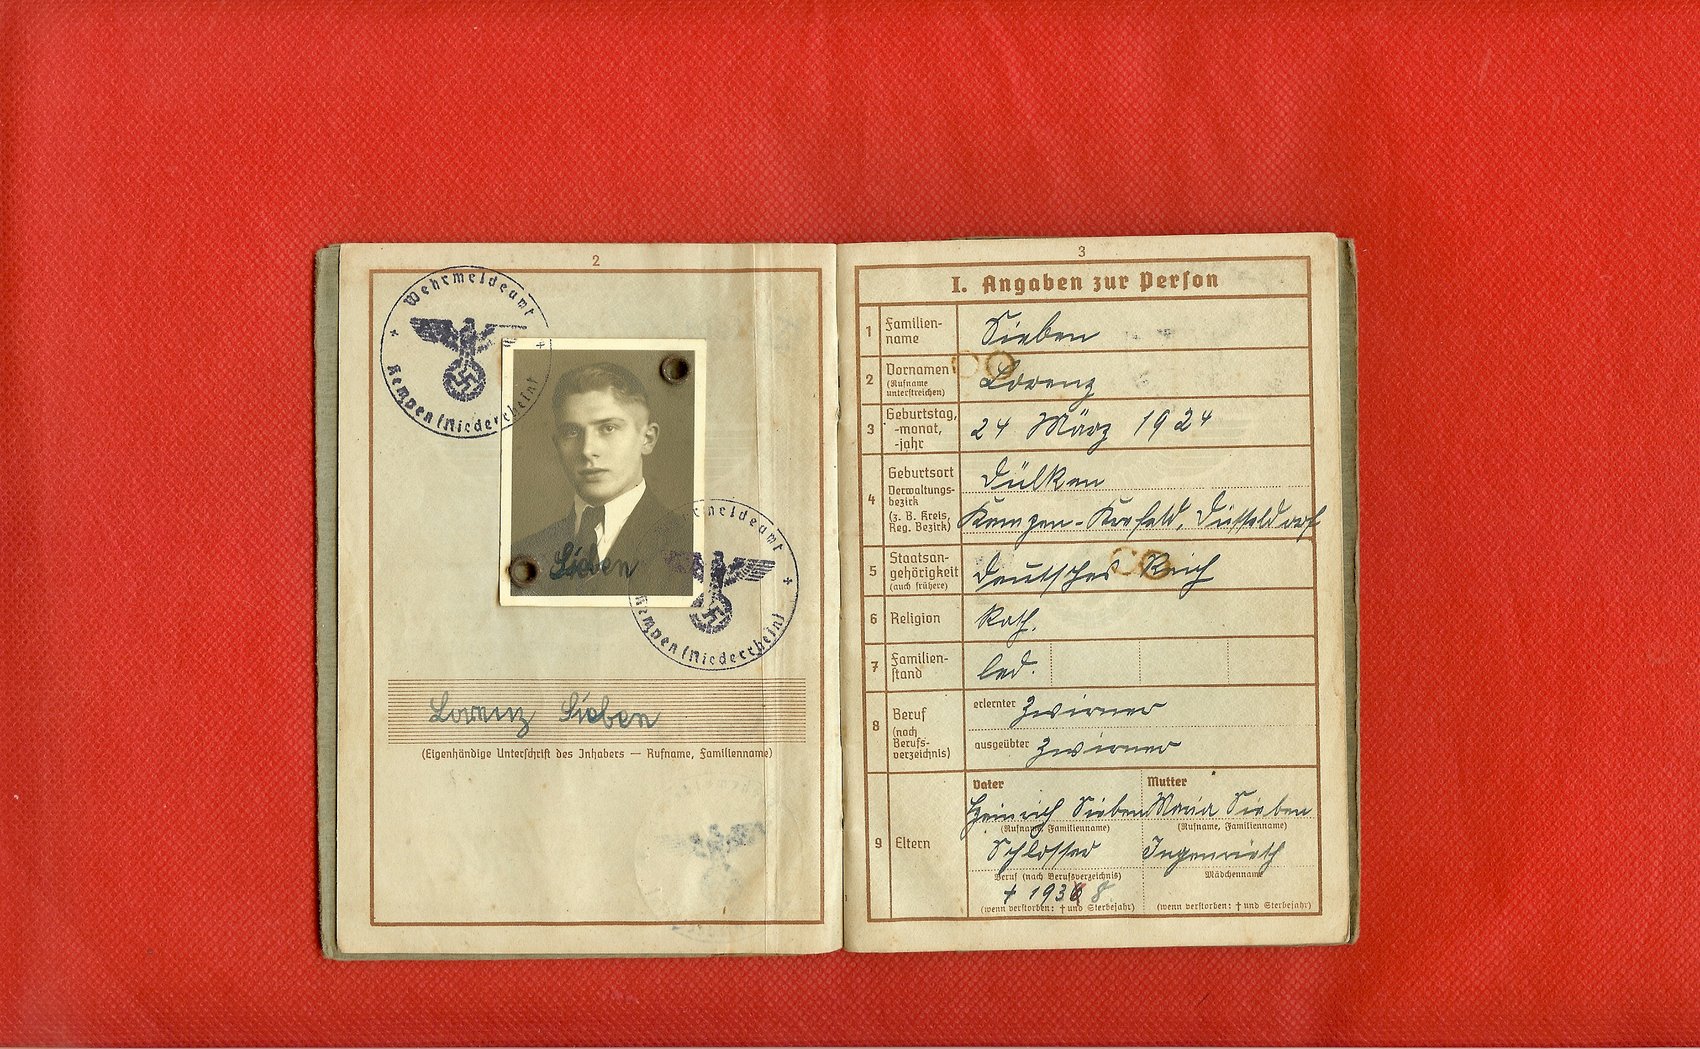 2
Wehrmeldeamt
Kempen (Niederrhein)
Sieben
Wehrmeldeamt
Kempen (Niederrhein)
Lorenz Sieben
(Eigenhändige Unterschrift des Inhabers — Rufname, Familienname)
3
I. Angaben zur Person
1 Familien-
name
Sieben
2 Vornamen
(Rufname
unterstreichen)
Lorenz
3 Geburtstag,
-monat,
-jahr
24 März 1924
4 Geburtsort
Verwaltungs-
bezirk
(z. B. Kreis,
Reg. Bezirk)
Dülken
Kempen-Krefeld, Düsseldorf
5 Staatsan-
gehörigkeit
(auch frühere)
Deutsches Reich
6 Religion
Kath.
7 Familien-
stand
led.
8 Beruf
(nach
Berufs-
verzeichnis)
erlernter Zwirner
ausgeübter Zwirner
9 Eltern
Vater
Heinrich Sieben
(Rufname, Familienname)
Schlosser
Beruf (nach Berufsverzeichnis)
† 1938
(wenn verstorben: † und Sterbejahr)
Mutter
Maria Sieben
(Rufname, Familienname)
Ingenrieth
Mädchenname
(wenn verstorben: † und Sterbejahr)